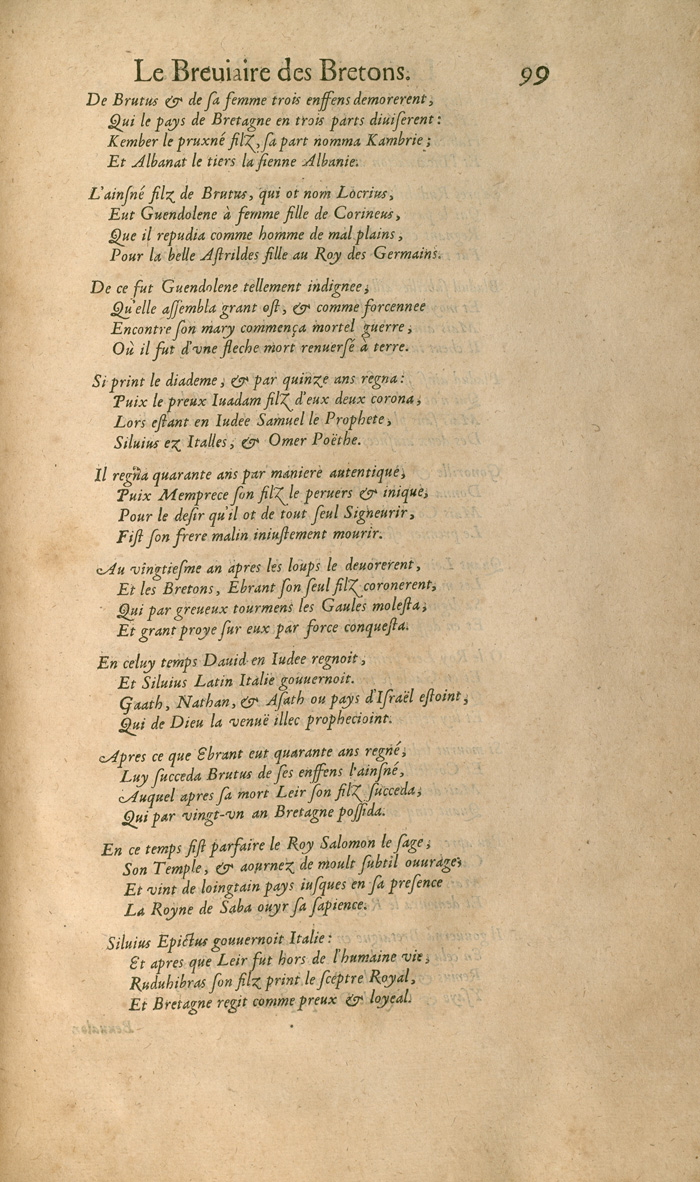 Le Breuiaire des Bretons. 99
De Brutus & de ſa femme trois enffens demorerent,
Qui le pays de Bretagne en trois parts diuiſerent:
Kember le pruxné filz, ſa part nomma Kambrie;
Et Albanat le tiers la ſienne Albanie.
L'ainſné filz de Brutus, qui ot nom Locrius,
Eut Guendolene à femme fille de Corineus,
Que il repudia comme homme de mal plains,
Pour la belle Aſtrildes fille au Roy des Germains.
De ce fut Guendolene tellement indignee,
Qu'elle aſſembla grant oſt, & comme forcennee
Encontre ſon mary commença mortel guerre,
Où il fut d'vne fleche mort renuerſé à terre.
Si print le diademe, & par quinze ans regna:
Puix le preux Iuadam filz d'eux deux corona,
Lors eſtant en Iudee Samuel le Prophete,
Siluius ez Italles, & Omer Poëthe.
Il regna quarante ans par maniere autentique,
Puix Memprece ſon filz le peruers & inique,
Pour le deſir qu'il ot de tout ſeul Signeurir,
Fiſt ſon frere malin iniuſtement mourir.
Au vingtieſme an apres les loups le deuorerent,
Et les Bretons, Ebrant ſon ſeul filz coronerent,
Qui par greueux tourmens les Gaules moleſta,
Et grant proye ſur eux par force conqueſta.
En celuy temps Dauid en Iudee regnoit,
Et Siluius Latin Italie gouuernoit.
Gaath, Nathan, & Aſath ou pays d'Iſraël eſtoint,
Qui de Dieu la venuë illec prophecioint.
Apres ce que Ebrant eut quarante ans regné,
Luy ſucceda Brutus de ſes enffens l'ainſné,
Auquel apres ſa mort Leir ſon filz ſucceda,
Qui par vingt-vn an Bretagne poſſida.
En ce temps fiſt parfaire le Roy Salomon le ſage,
Son Temple, & aournez de moult ſubtil ouurage,
Et vint de loingtain pays iuſques en ſa preſence
La Royne de Saba ouyr ſa ſapience.
Siluius Epictus gouuernoit Italie:
Et apres que Leir fut hors de l'humaine vie,
Ruduhibras ſon filz print le ſceptre Royal,
Et Bretagne regit comme preux & loyeal.